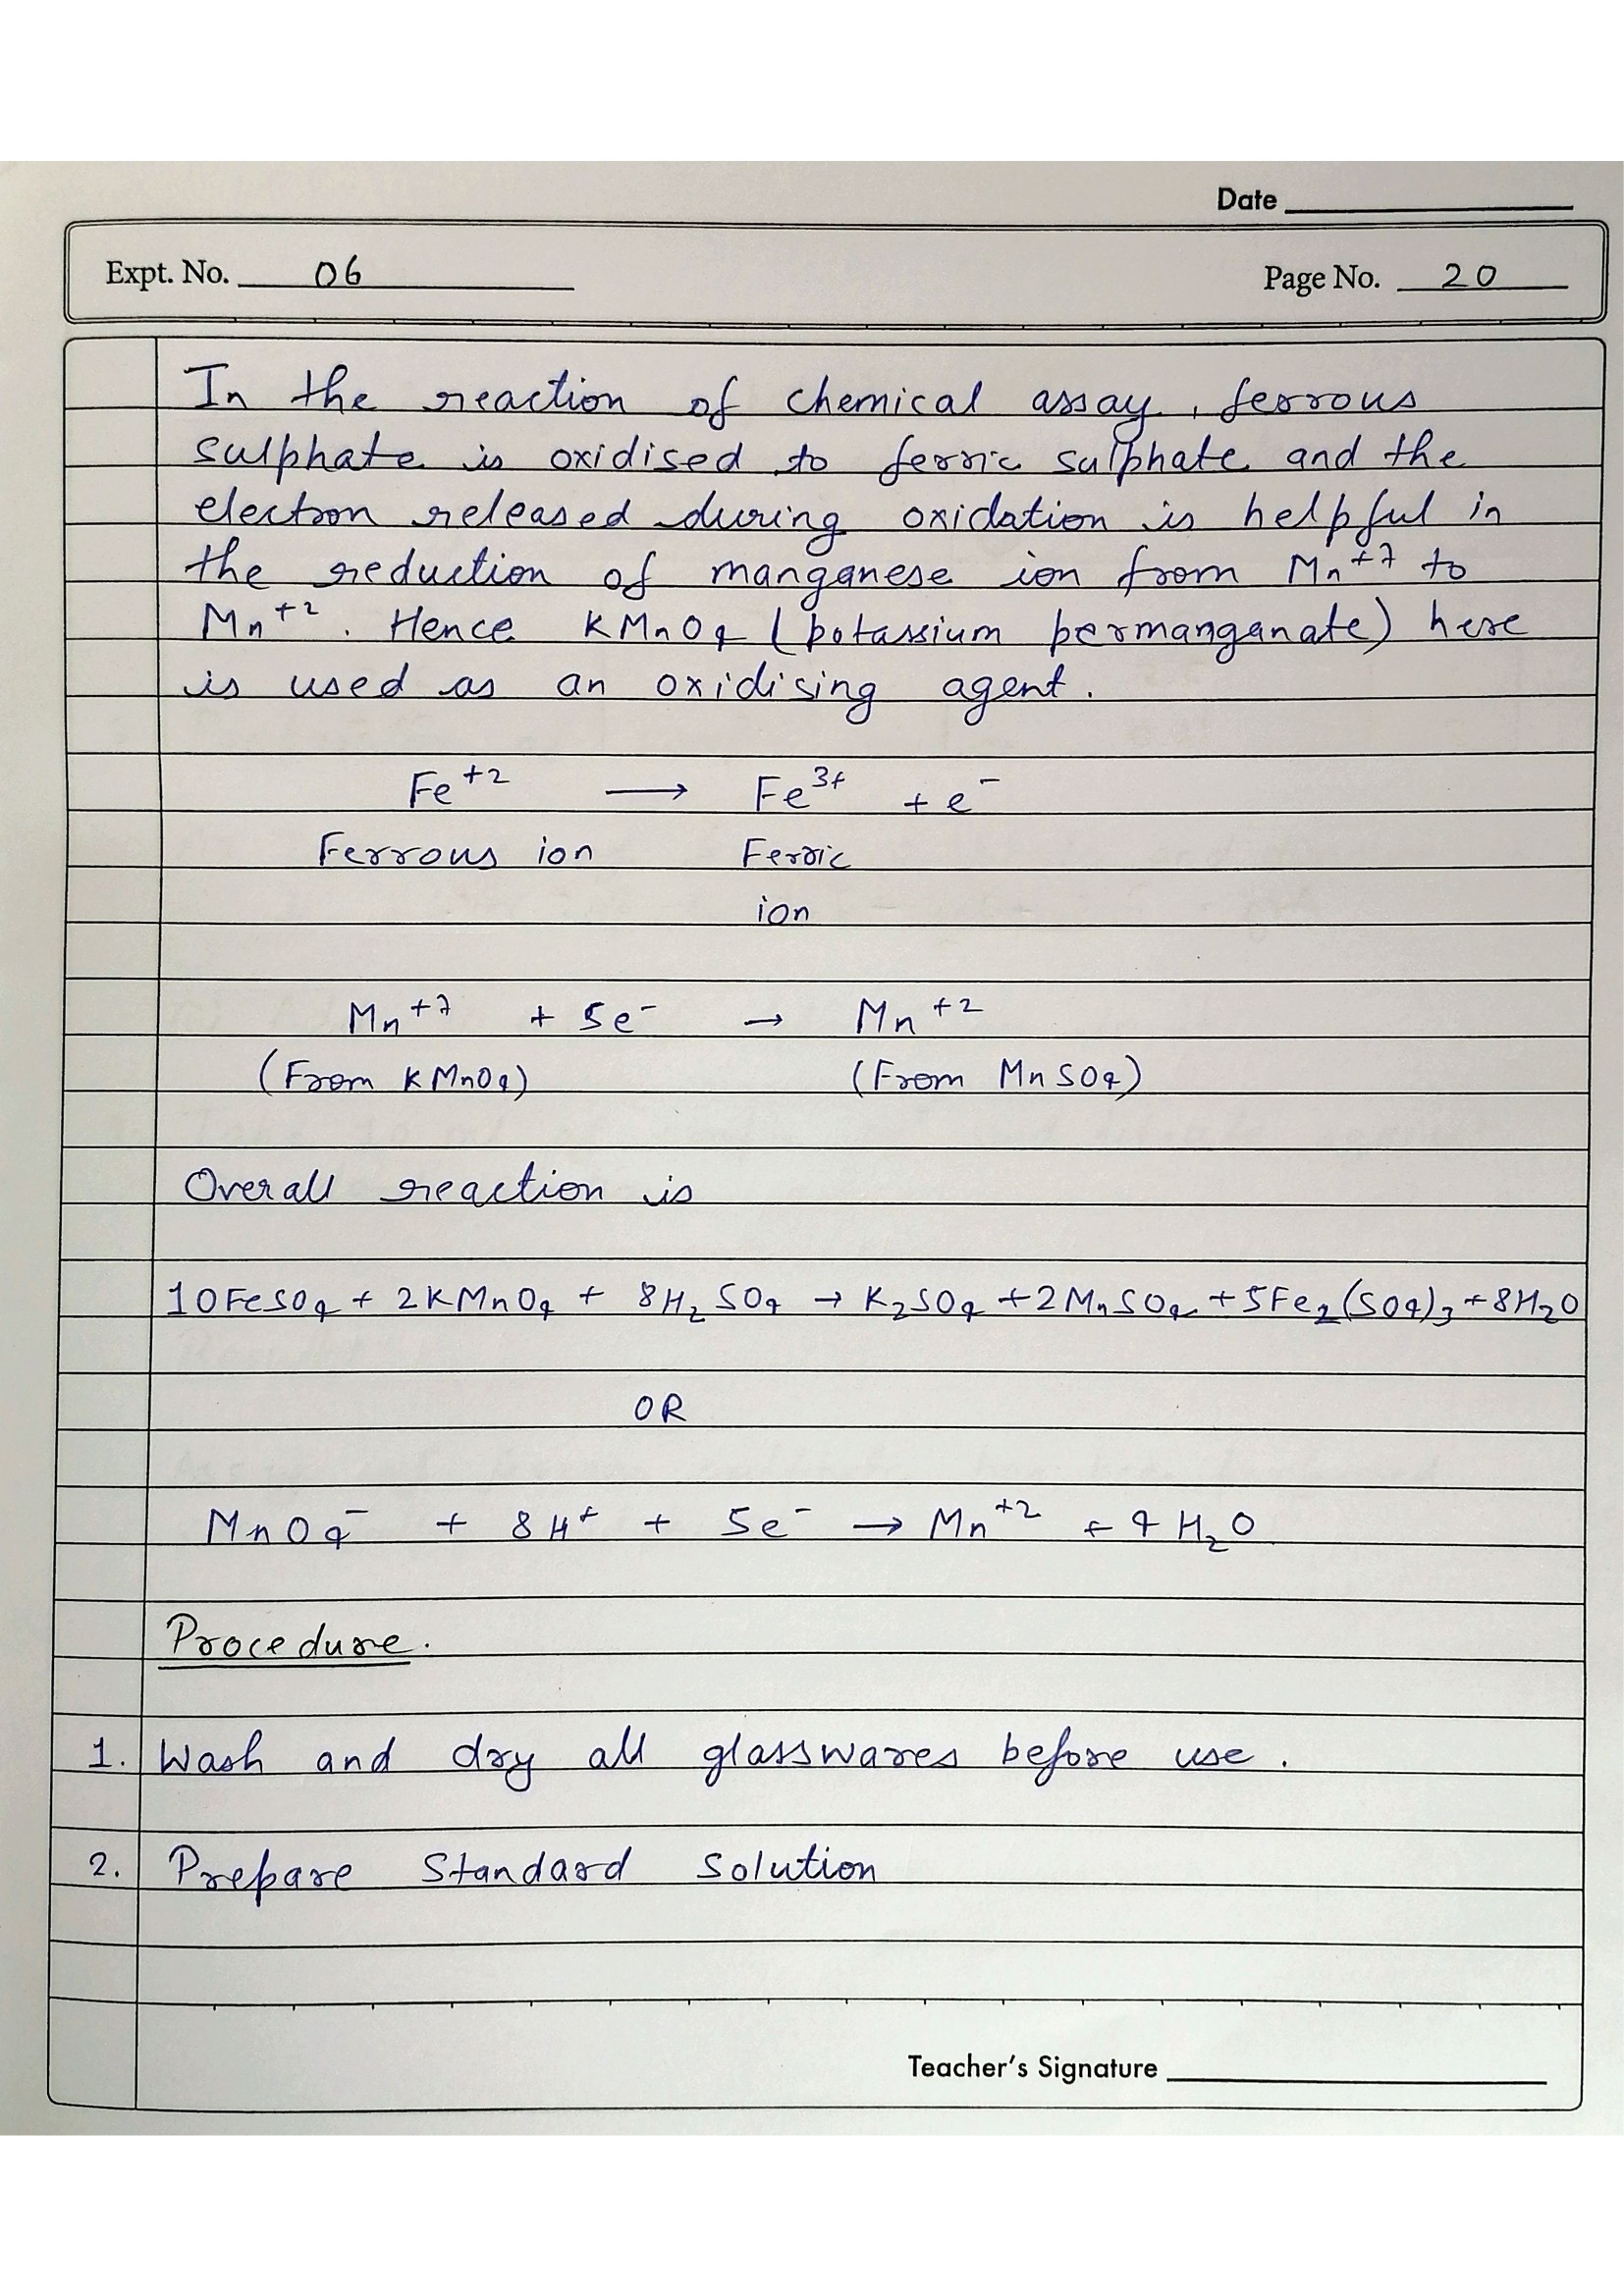 Date
Expt. No. 06
Page No. 20
In the reaction of chemical assay, ferrous
sulphate is oxidised to ferric sulphate and the
electron released during oxidation is helpful in
the reduction of manganese ion from Mn⁺⁷ to
Mn⁺². Hence KMnO₄ (potassium permanganate) here
is used as an oxidising agent.
Fe⁺² ⟶ Fe³⁺ + e⁻
Ferrous ion Ferric
ion
Mn⁺⁷ + 5e⁻ → Mn⁺²
(From KMnO₄) (From MnSO₄)
Overall reaction is
10FeSO₄ + 2KMnO₄ + 8H₂SO₄ → K₂SO₄ + 2MnSO₄ + 5Fe₂(SO₄)₃ + 8H₂O
OR
MnO₄⁻ + 8H⁺ + 5e⁻ → Mn⁺² + 4H₂O
Procedure.
1. Wash and dry all glasswares before use.
2. Prepare Standard Solution
Teacher's Signature